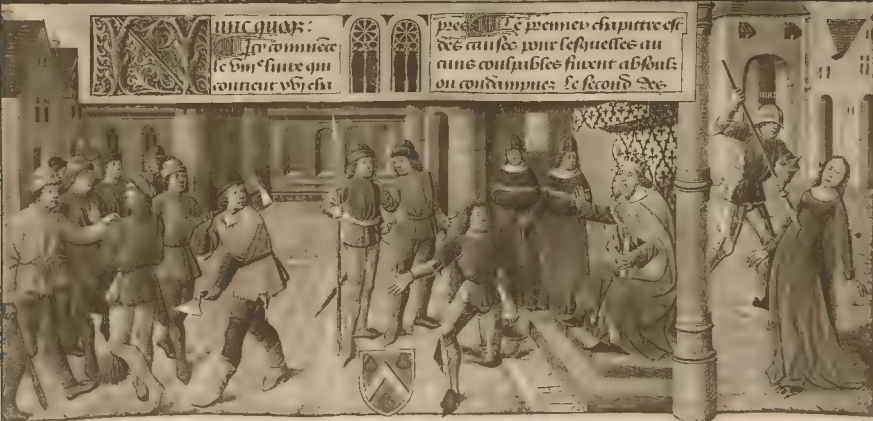 Nunc quoz:
Icy commence
le viije livre qui
contient xvj cha
pitres Le premier chapittre est
des causes pour lesquelles au
cuns coulpables furent absoulz
ou condampnez Le second des